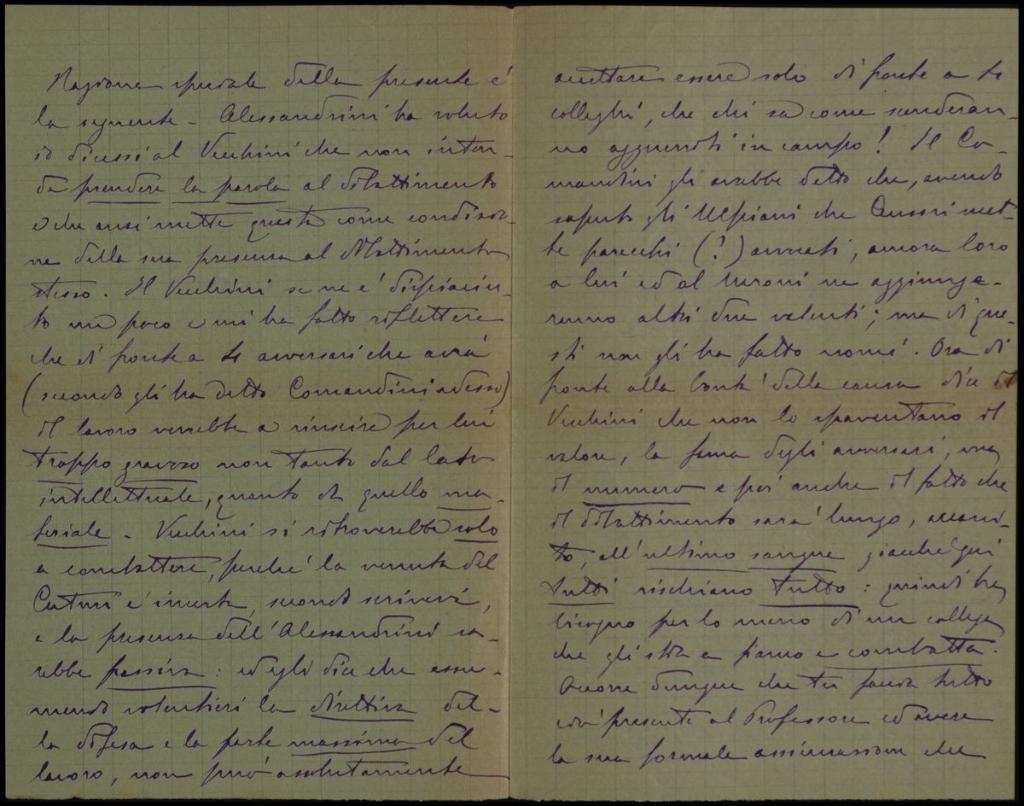 Ragione speciale della presente è
la seguente - Alessandrini ha voluto
io dicessi al Vecchini che non inten-
de prendere la parola al dibattimento
e che anzi mette questa come condizio-
ne della sua presenza al dibattimento
stesso. Il Vecchini se ne è dispiaciu-
to un poco e mi ha fatto riflettere
che di fronte a 4 avversari che avrà
(secondo gli ha detto Comandini adesso)
il lavoro verrebbe a riuscire per lui
troppo gravoso non tanto dal lato
intellettuale, quanto da quello ma-
teriale - Vecchini si ritroverebbe solo
a combattere, perché la venuta del
è incerta, secondo scriverà,
e la presenza dell'Alessandrini sa-
rebbe passiva: ed egli dice che assu-
mendo volentieri la direttiva del-
la difesa e la parte massima del
lavoro, non può assolutamente
accettare essere solo di fronte a 4
colleghi, che chi sa come scenderan-
no agguerriti in campo! Il Co-
mandini gli avrebbe detto che, avendo
saputo gli che met-
te parecchi (?) avvocati, ancora loro
a lui ed al ne aggiunge-
ranno altri due valenti; ma di que-
sti non gli ha fatto nomi. Ora di
fronte alla bontà della causa dice il
Vecchini che non lo spaventano il
valore, la fama degli avversari, ma
il numero e poi anche il fatto che
il dibattimento sarà lungo, accani-
to, all'ultimo sangue giacché qui
tutti rischiano tutto: quindi ha
bisogno per lo meno di un collega
che gli stia a fianco e combatta.
Occorre dunque che tu faccia tutto
ciò presente al Professore ed avere
la sua formale assicurazione che